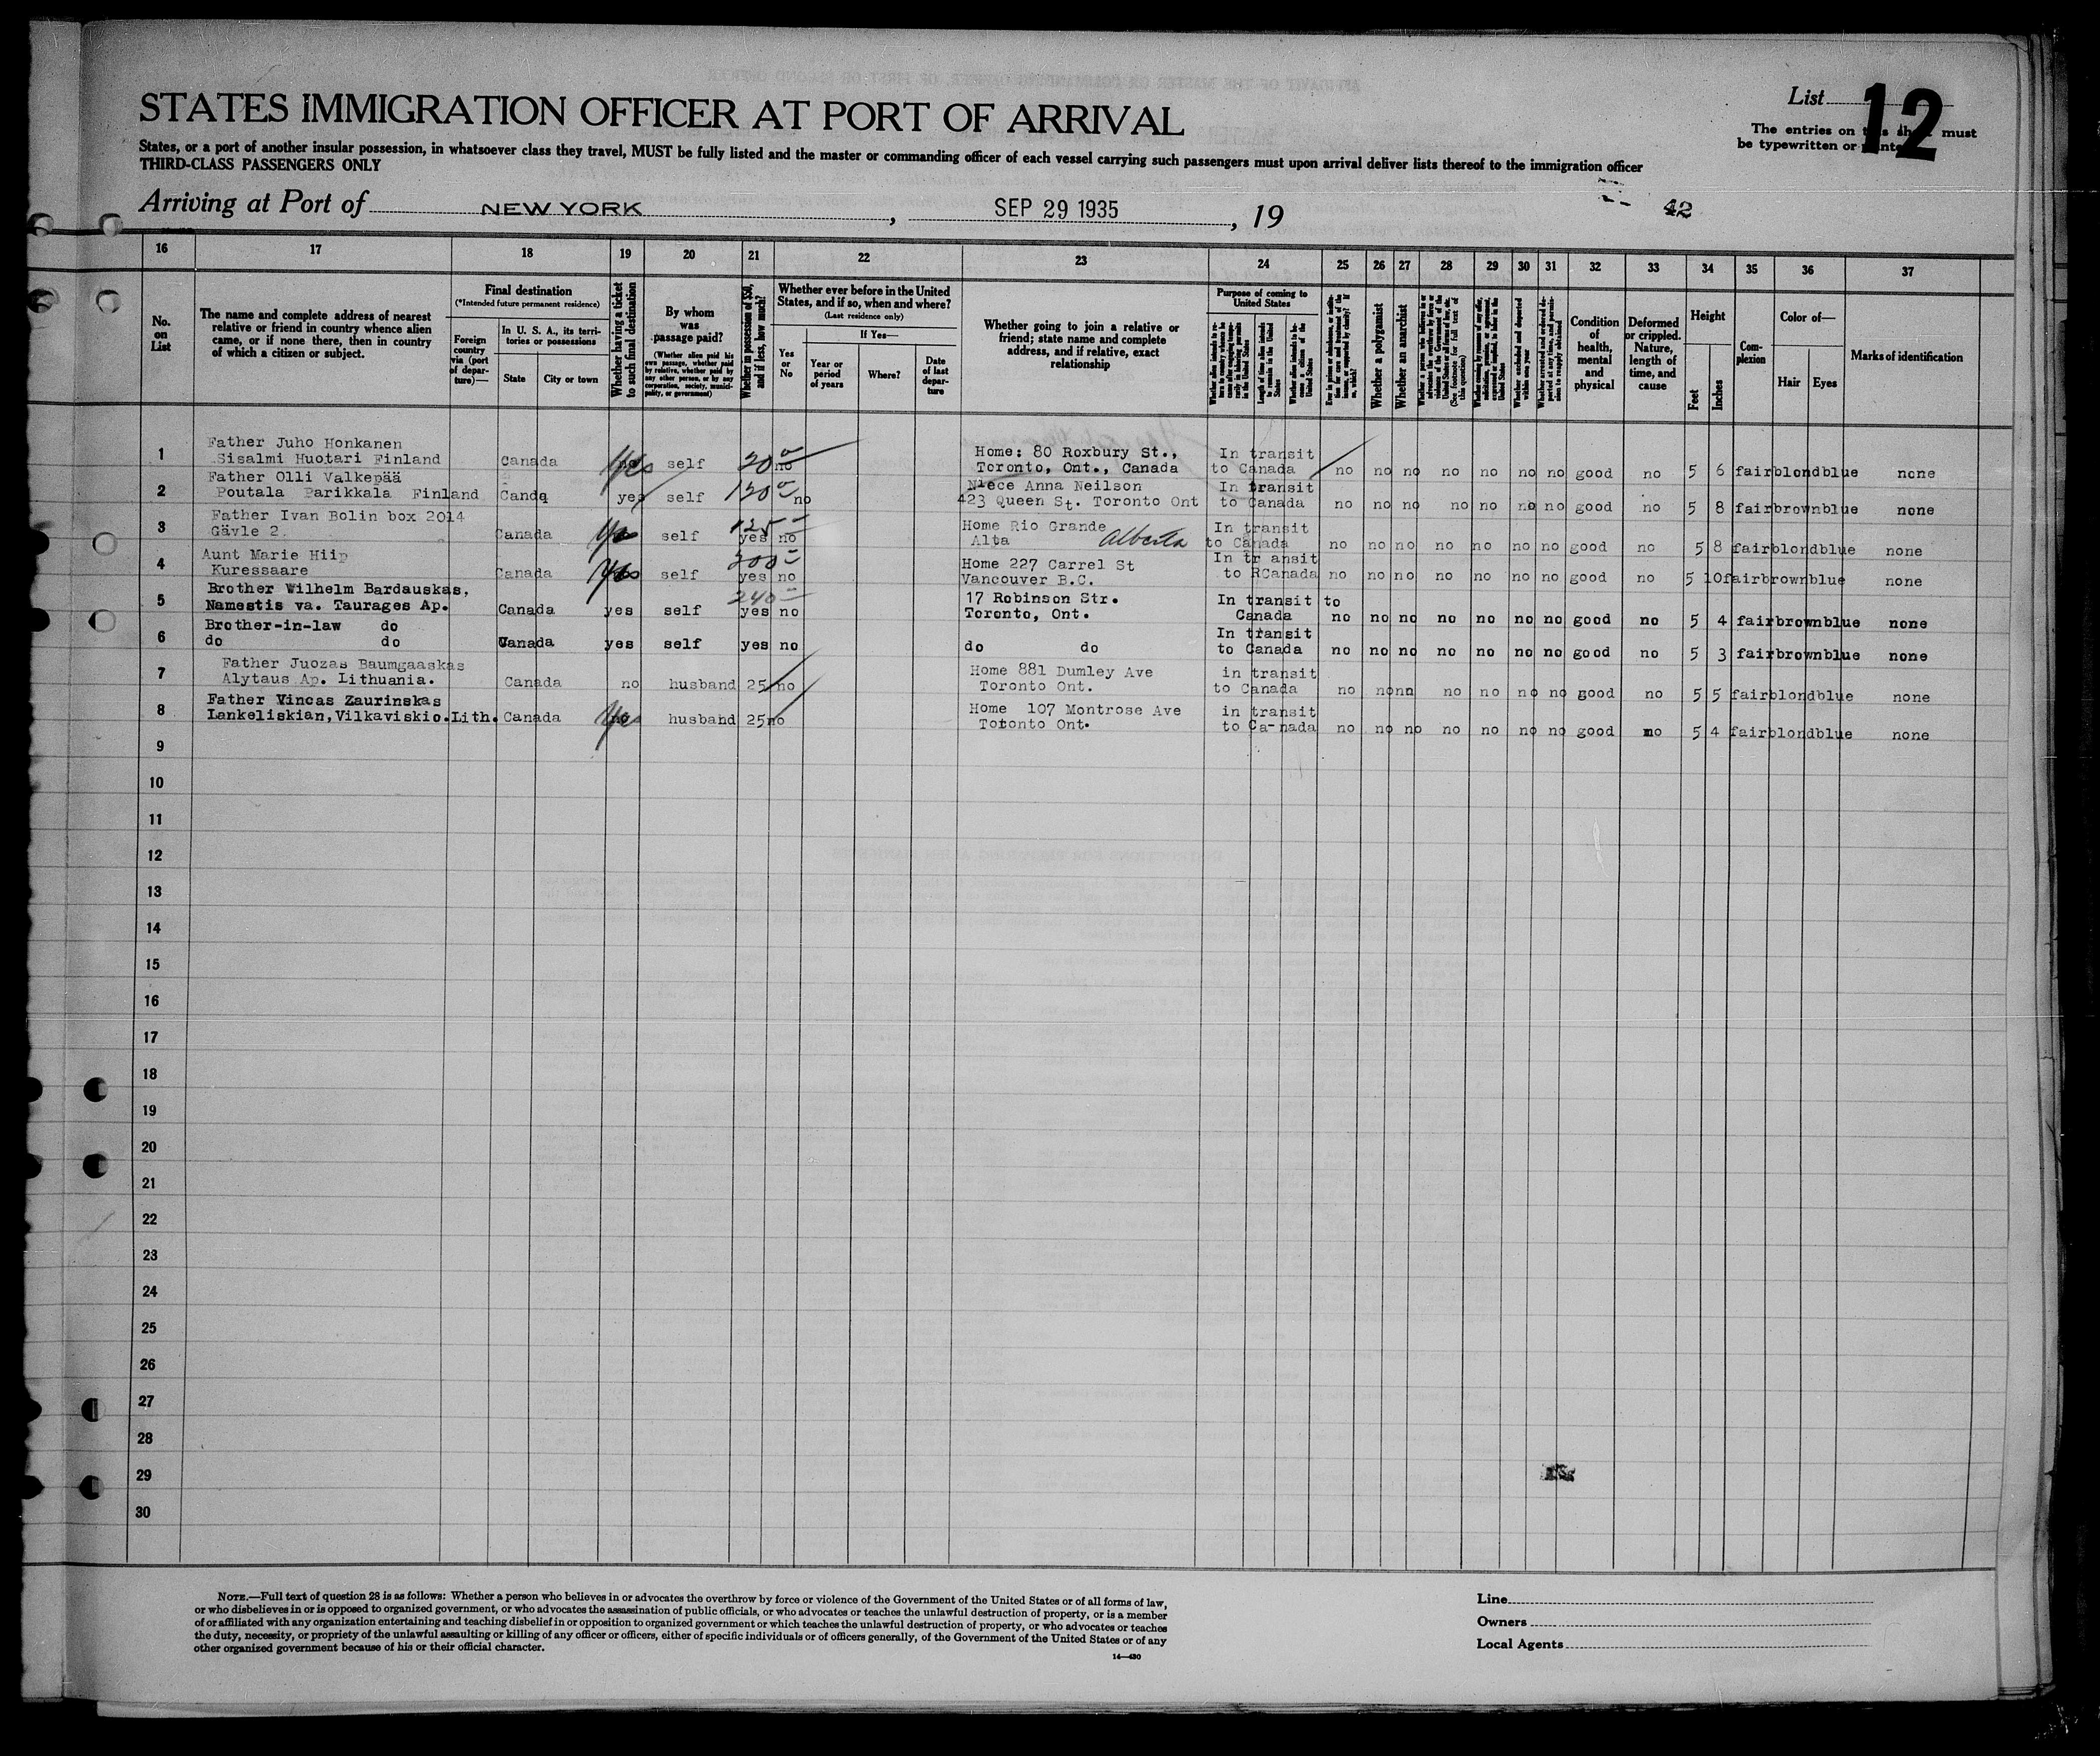 STATES IMMIGRATION OFFICER AT PORT OF ARRIVAL
List 12
The entries on must
be typewritten or
States, or a port of another insular possession, in whatsoever class they travel, MUST be fully listed and the master or commanding officer of each vessel carrying such passengers must upon arrival deliver lists thereof to the immigration officer
THIRD-CLASS PASSENGERS ONLY
Arriving at Port of NEW YORK, SEP 29 1935, 19
42
16 17 18 19 20 21 22 23 24 25 26 27 28 29 30 31 32 33 34 35 36 37
No. on List
The name and complete address of nearest relative or friend in country whence alien came, or if none there, then in country of which a citizen or subject.
Final destination
(*Intended future permanent residence)
Foreign country via (port of departure)—
In U. S. A., its territories or possessions
State
City or town
Whether having a ticket to such final destination
By whom was passage paid?
(Whether alien paid his own passage, whether paid by relative, whether paid by any other person, or by any corporation, society, municipality, or government)
Whether in possession of $50, and if less, how much?
Whether ever before in the United States, and if so, when and where?
(Last residence only)
Yes or No
If Yes—
Year or period of years
Where?
Date of last departure
Whether going to join a relative or friend; state name and complete address, and if relative, exact relationship
Purpose of coming to United States
Whether a polygamist
Whether an anarchist
Condition of health, mental and physical
Deformed or crippled. Nature, length of time, and cause
Height
Feet
Inches
Complexion
Color of—
Hair
Eyes
Marks of identification
1 Father Juho Honkanen Home: 80 Roxbury St., In transit
Sisalmi Huotari Finland Canada yes self 20 no Toronto, Ont., Canada to Canada no no no no no no no good no 5 6 fair blond blue none
2 Father Olli Valkepää Niece Anna Neilson In transit
Poutala Parikkala Finland Canda yes self 120 no 423 Queen St. Toronto Ont to Canada no no no no no no no good no 5 8 fair brown blue none
3 Father Ivan Bolin box 2014 125 Home Rio Grande In transit
Gävle 2 Canada self yes no Alta Alberta to Canada no no no no no no no good no 5 8 fair blond blue none
4 Aunt Marie Hiip 200 Home 227 Carrel St In tr ansit
Kuressaare Canada yes self yes no Vancouver B.C. to RCanada no no no no no no no good no 5 10 fair brown blue none
5 Brother Wilhelm Bardauskas, 240 17 Robinson Str. In transit to
Namestis va. Taurages Ap. Canada yes self yes no Toronto, Ont. Canada no no no no no no no good no 5 4 fair brown blue none
6 Brother-in-law do In transit
do do Canada yes self yes no do do to Canada no no no no no no no good no 5 3 fair brown blue none
7 Father Juozas Baumgaaskas Home 881 Dumley Ave in transit
Alytaus Ap. Lithuania. Canada no husband 25 no Toronto Ont. to Canada no no no no no no no good no 5 5 fair blond blue none
8 Father Vincas Zaurinskas Home 107 Montrose Ave in transit
Lankeliskian, Vilkaviskio. Lith. Canada yes husband 25 no Totonto Ont. to Ca-nada no no no no no no no good no 5 4 fair blond blue none
9
10
11
12
13
14
15
16
17
18
19
20
21
22
23
24
25
26
27
28
29
30
NOTE.—Full text of question 28 is as follows: Whether a person who believes in or advocates the overthrow by force or violence of the Government of the United States or of all forms of law,
or who disbelieves in or is opposed to organized government, or who advocates the assassination of public officials, or who advocates or teaches the unlawful destruction of property, or is a member
of or affiliated with any organization entertaining and teaching disbelief in or opposition to organized government or which teaches the unlawful destruction of property, or who advocates or teaches
the duty, necessity, or propriety of the unlawful assaulting or killing of any officer or officers, either of specific individuals or of officers generally, of the Government of the United States or of any
other organized government because of his or their official character.
14—430
Line
Owners
Local Agents